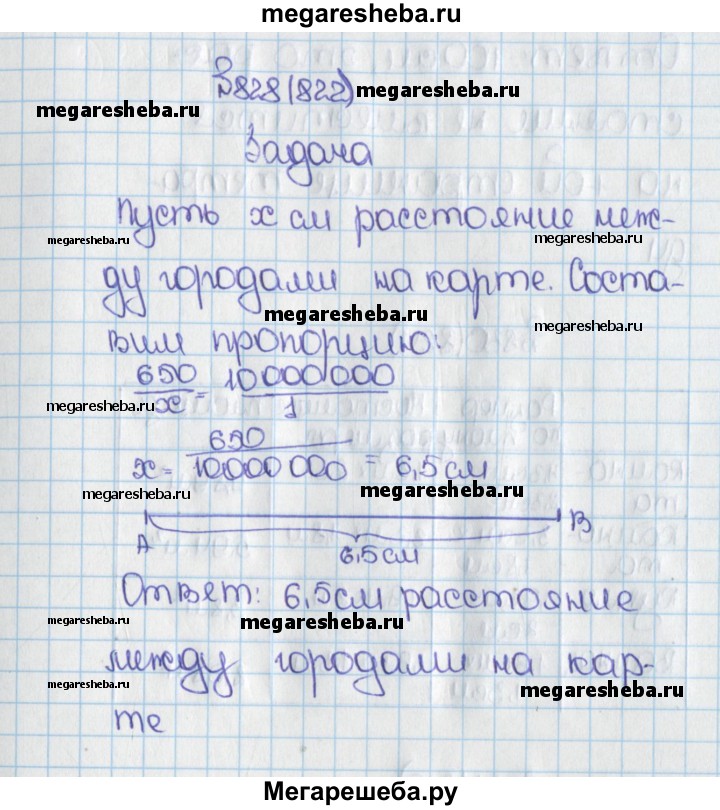 megaresheba.ru
№828(822)
megaresheba.ru
megaresheba.ru
Задача
Пусть x см расстояние меж-
megaresheba.ru megaresheba.ru
ду городами на карте. Соста-
megaresheba.ru
вим пропорцию: megaresheba.ru
650/x = 10000000/1
megaresheba.ru megaresheba.ru
x = 650/10000000 = 6,5см
megaresheba.ru megaresheba.ru
A B
6,5см
Ответ: 6,5см расстояние
megaresheba.ru megaresheba.ru megaresheba.ru
между городами на кар-
megaresheba.ru megaresheba.ru
те
Мегарешеба.ру